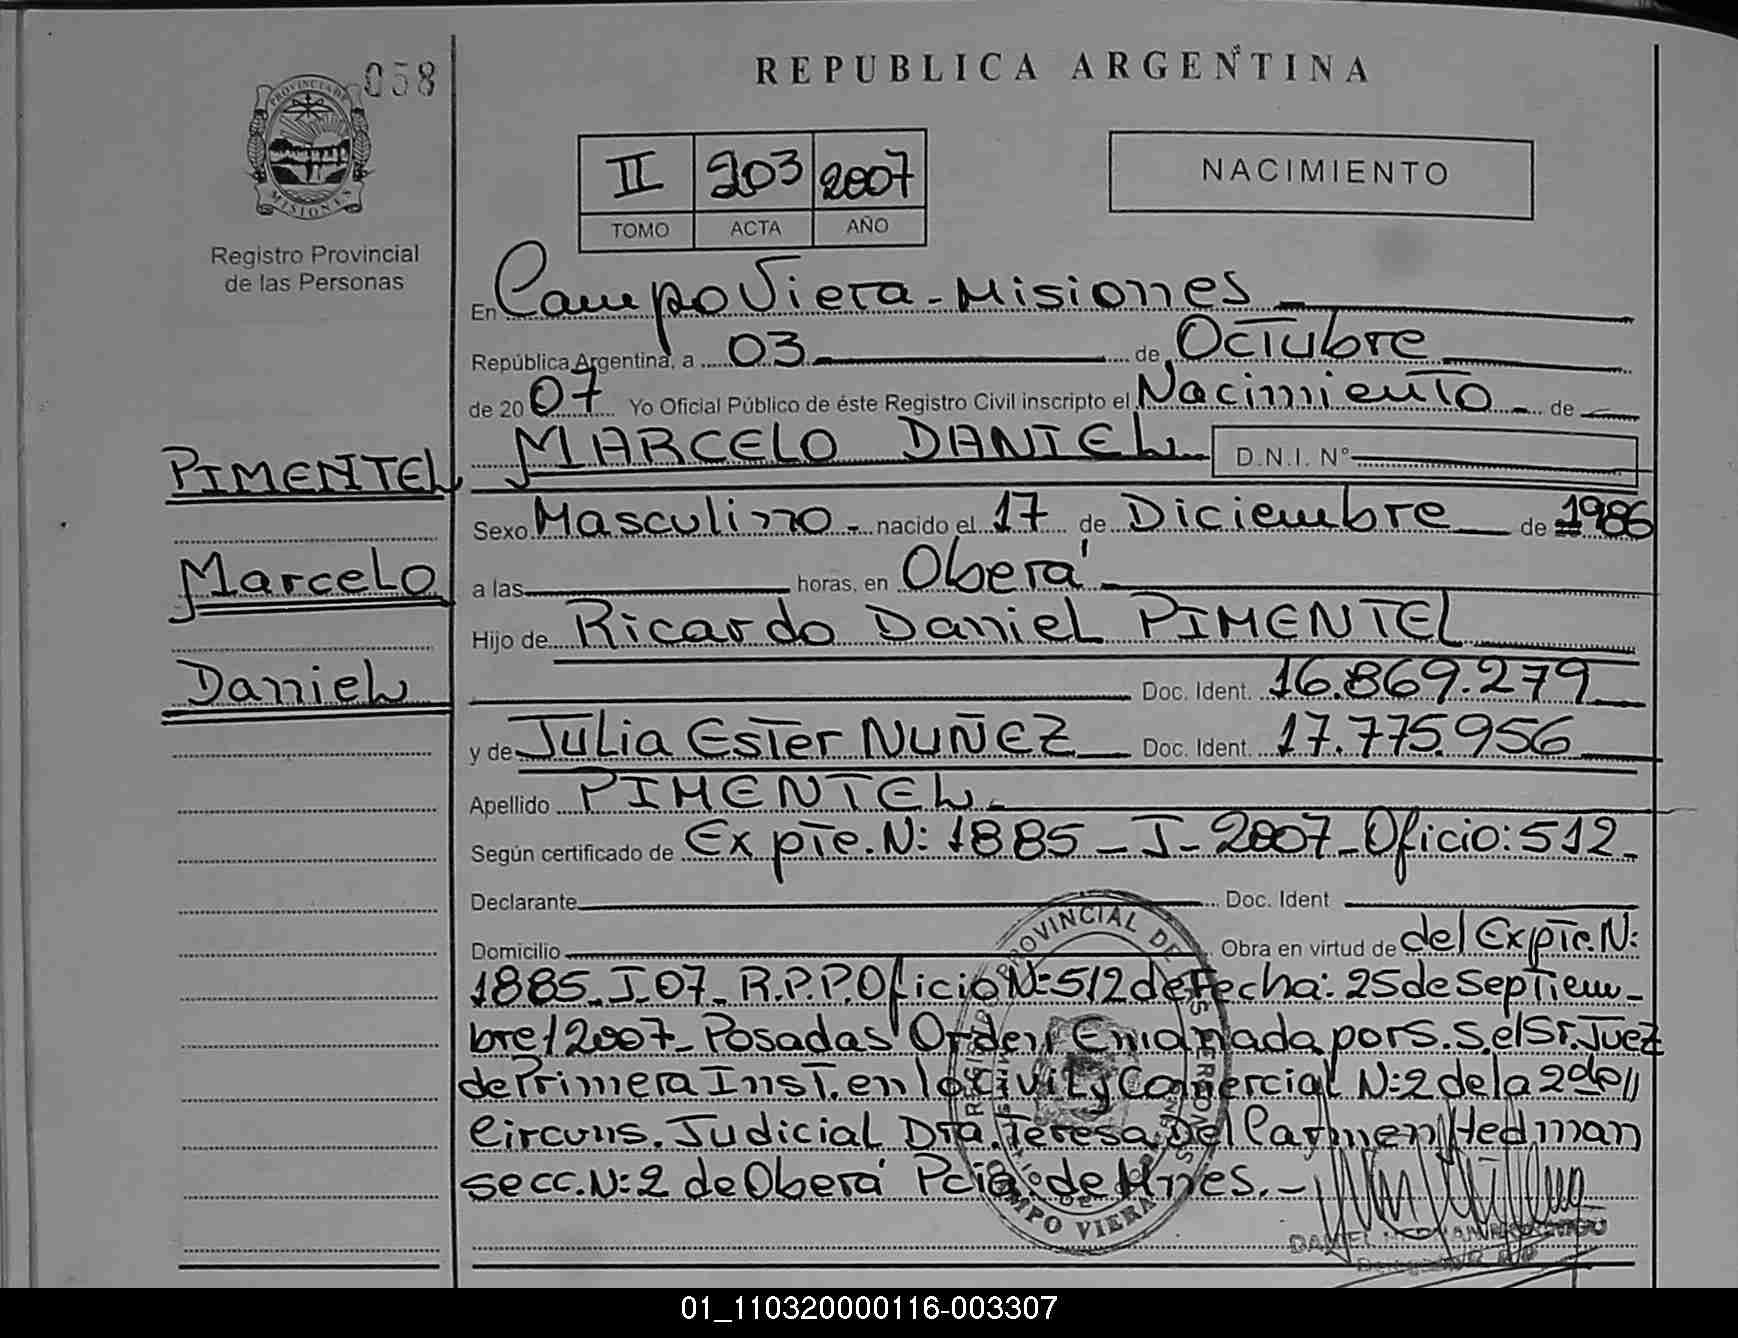 058
REPUBLICA ARGENTINA
PROVINCIA DE
MISIONES
II 203 2007
TOMO ACTA AÑO
NACIMIENTO
Registro Provincial
de las Personas
En Campo Viera - Misiones
República Argentina, a 03 de Octubre
de 2007 Yo Oficial Público de éste Registro Civil inscripto el Nacimiento de
PIMENTEL MARCELO DANIEL D.N.I. N°
Sexo Masculino - nacido el 17 de Diciembre de 1986
Marcelo a las horas, en Oberá
Hijo de Ricardo Daniel PIMENTEL
Daniel Doc. Ident. 16.869.279
y de Julia Ester NUÑEZ Doc. Ident. 17.775.956
Apellido PIMENTEL
Según certificado de Expte. N: 1885 - J - 2007 - Oficio: 512
Declarante Doc. Ident
Domicilio Obra en virtud de del Expte. N:
1885 - J - 07 - R.P.P. Oficio N: 512 de Fecha: 25 de Septiem-
bre / 2007 - Posadas Orden Emanada por S.S. el Sr. Juez
de Primera Inst. en lo Civil y Comercial N: 2 de la 2da
Circuns. Judicial Dra. Teresa Del Carmen Hedman
secc. N: 2 de Oberá Pcia. de Mnes. -
CAMPO VIERA
DANIEL
01_110320000116-003307